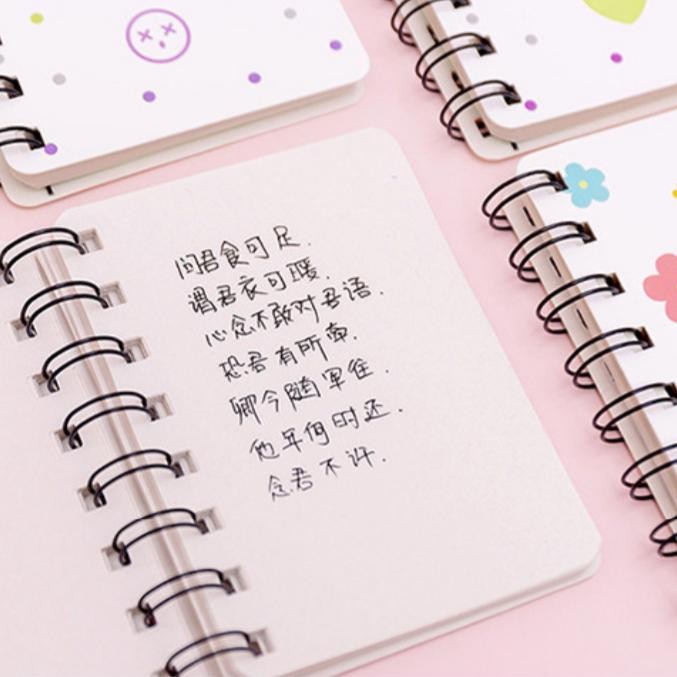 问君食可足.
谓君衣可暖.
心念不敢对君语.
恐君有所牵.
卿今随军往.
他年何时还.
念君不许.